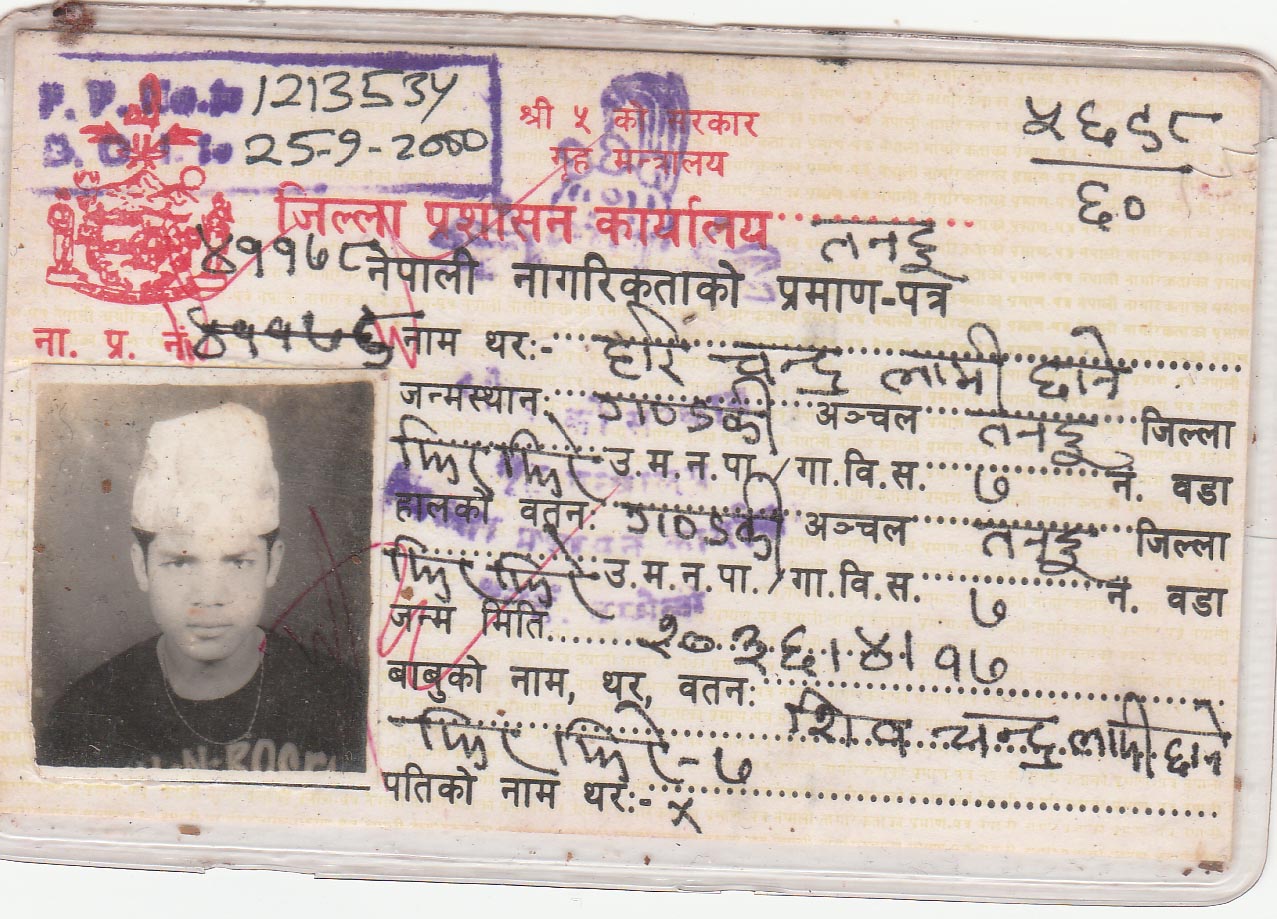 P. P. No. 1213534
D. O. I. 25-9-2000
श्री ५ को सरकार
गृह मन्त्रालय
५६९८
६०
जिल्ला प्रशासन कार्यालय तनहूँ
४११७८ नेपाली नागरिकताको प्रमाण-पत्र
ना. प्र. नं.
नाम थर:- हरि चन्द्र लामी छाने
जन्मस्थान: गण्डकी अञ्चल तनहूँ जिल्ला
फिर फिरे उ.म.न.पा./गा.वि.स. ७ नं. वडा
हालको वतन: गण्डकी अञ्चल तनहूँ जिल्ला
फिर फिरे उ.म.न.पा./गा.वि.स. ७ नं. वडा
जन्म मिति २०३६।४।१७
बाबुको नाम, थर, वतन:
शिव चन्द्र लामी छाने
फिर फिरे - ७
पतिको नाम थर:- x